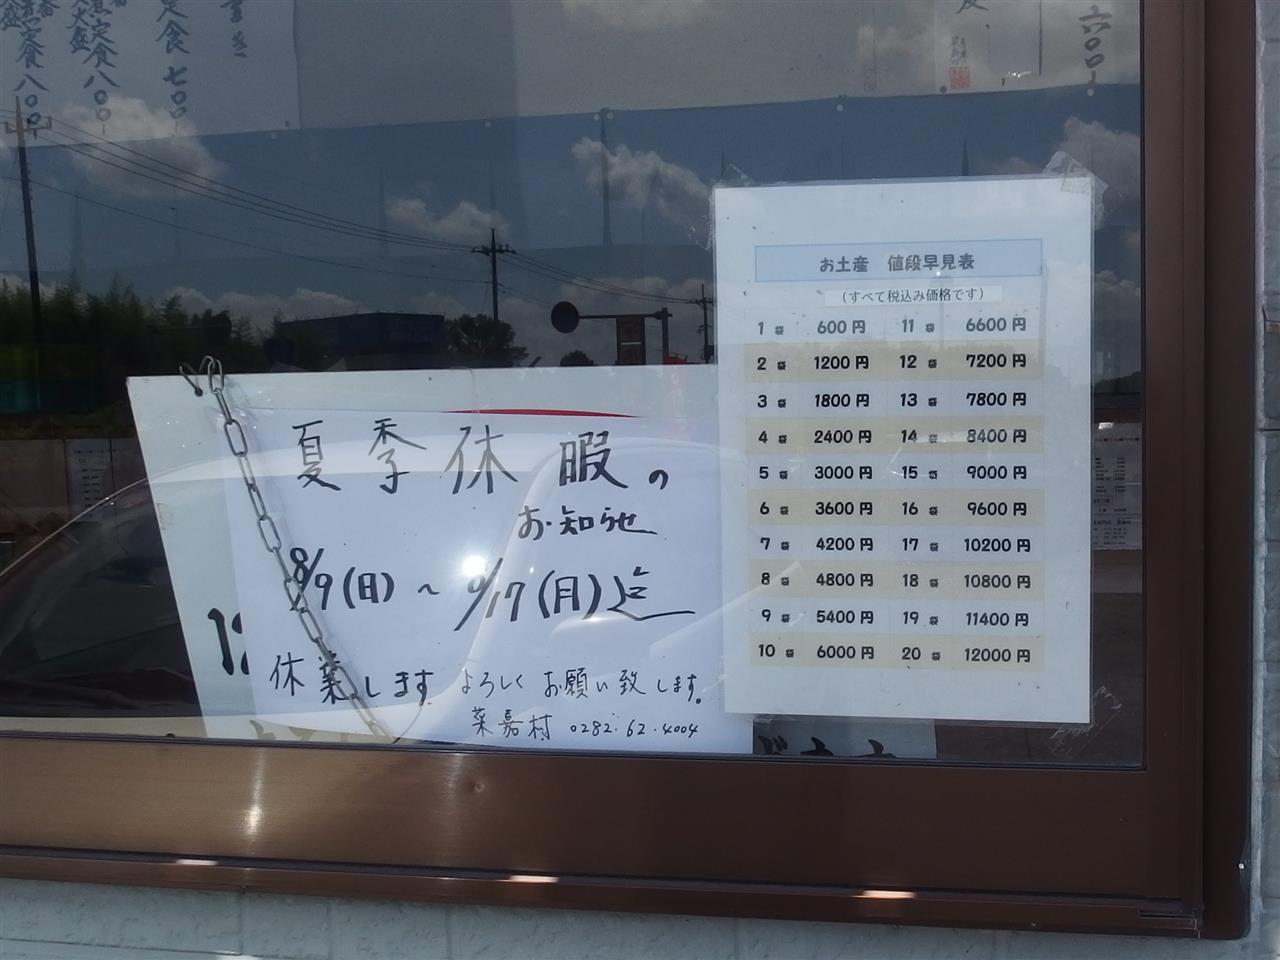 定食 七〇〇
定食 八〇〇
六〇〇
夏季休暇の
お知らせ
8/9(日)～8/17(月)迄
休業します よろしくお願い致します。
菜嘉村 0282.62.4004
お土産 値段早見表
(すべて税込み価格です)
1 袋 600円 11 袋 6600円
2 袋 1200円 12 袋 7200円
3 袋 1800円 13 袋 7800円
4 袋 2400円 14 袋 8400円
5 袋 3000円 15 袋 9000円
6 袋 3600円 16 袋 9600円
7 袋 4200円 17 袋 10200円
8 袋 4800円 18 袋 10800円
9 袋 5400円 19 袋 11400円
10 袋 6000円 20 袋 12000円